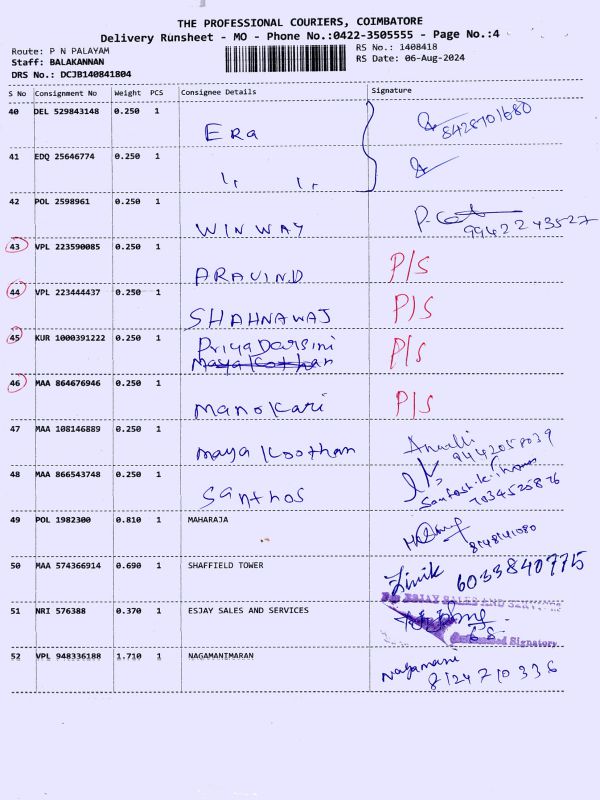 THE PROFESSIONAL COURIERS, COIMBATORE
Delivery Runsheet - MO - Phone No.:0422-3505555 - Page No.:4
Route: P N PALAYAM
RS No.: 1408418
Staff: BALAKANNAN
RS Date: 06-Aug-2024
DRS No.: DCJB140841804
S No Consignment No Weight PCS Consignee Details Signature
40 DEL 529843148 0.250 1 Era 8428701680
41 EDQ 25646774 0.250 1 ,, ,,
42 POL 2598961 0.250 1 WINWAY 9942243527
43 VPL 223590085 0.250 1 ARAVIND P/S
44 VPL 223444437 0.250 1 SHAHNAWAJ P/S
45 KUR 1000391222 0.250 1 PriyaDarsini P/S
Maya Koothan
46 MAA 864676946 0.250 1 Manokari P/S
47 MAA 108146889 0.250 1 Maya Koothan
48 MAA 866543748 0.250 1 Santhos 7034525876
49 POL 1982300 0.810 1 MAHARAJA 8148141080
50 MAA 574366914 0.690 1 SHAFFIELD TOWER 6033840775
51 NRI 576388 0.370 1 ESJAY SALES AND SERVICES
For ESJAY SALES AND SERVICES
Authorised Signatory
52 VPL 948336188 1.710 1 NAGAMANIMARAN Nagamani
8124710336